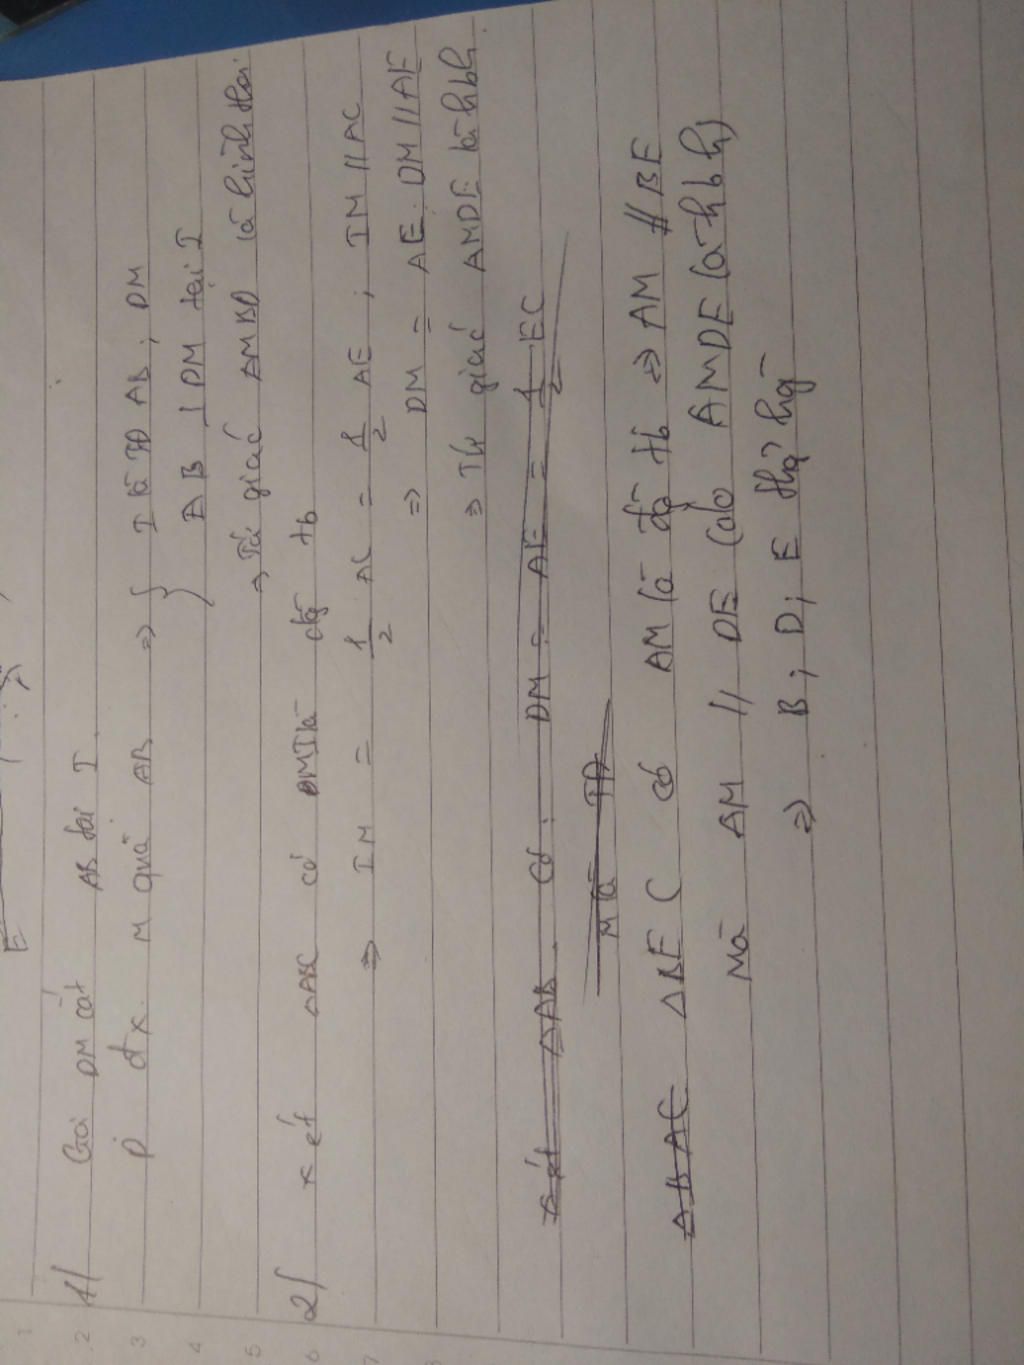 E
1/ Gọi DM cắt AB tại I
D đx M qua AB => { I là TĐ AB; DM
AB ⊥ DM tại I
=> Tứ giác AMBD là hình thoi
2/ xét △ABC có MI là đg tb
=> IM = 1/2 AC = 1/2 AE ; IM // AC
=> DM = AE ; DM // AE
=> Tứ giác AMDE là hbh.
Xét △AB có: DM = AE = 1/2 EC
M là TĐ
△BAC △BEC có AM là đg tb => AM // BE
Mà AM // DE (do AMDE là hbh)
=> B; D; E thg hg
1
2
3
4
5
6
7
8